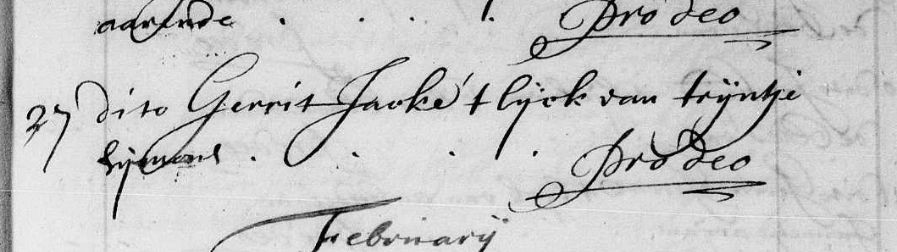 aarende . . . . Pro deo
27 dito Gerrit Jacke t lijck van trijntje
Sijmons . . . . Pro deo
Februarij